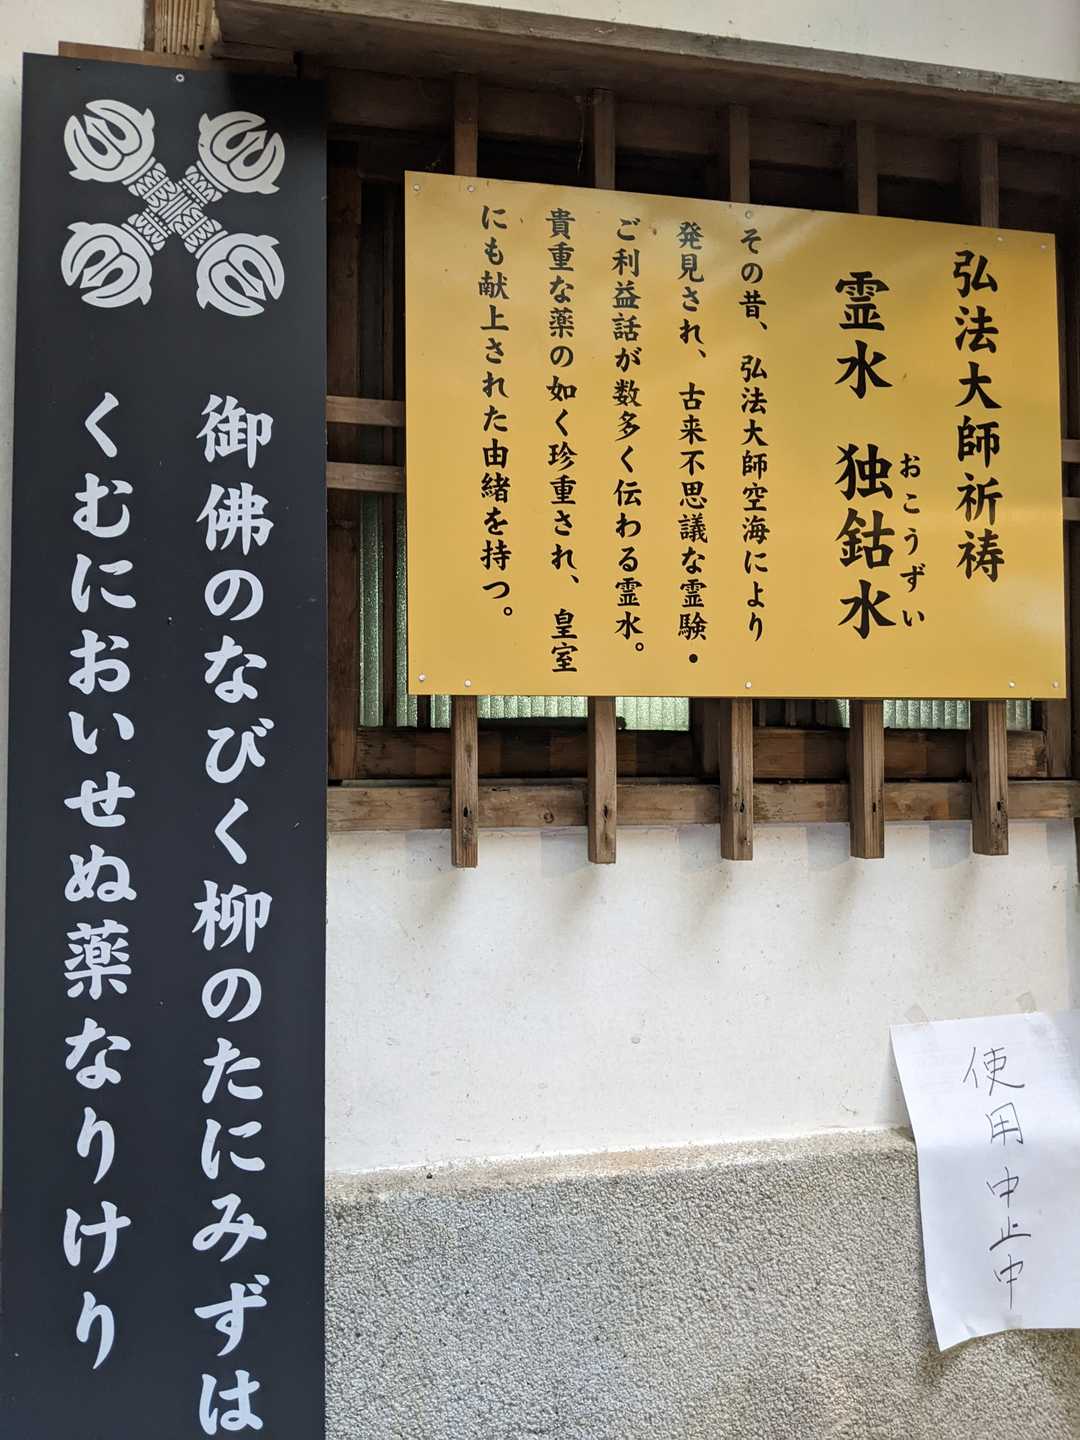 弘法大師祈祷
霊水　独鈷水
おこうずい
その昔、弘法大師空海により
発見され、古来不思議な霊験・
ご利益話が数多く伝わる霊水。
貴重な薬の如く珍重され、皇室
にも献上された由緒を持つ。
御佛のなびく柳のたにみずは
くむにおいせぬ薬なりけり
使用中止中